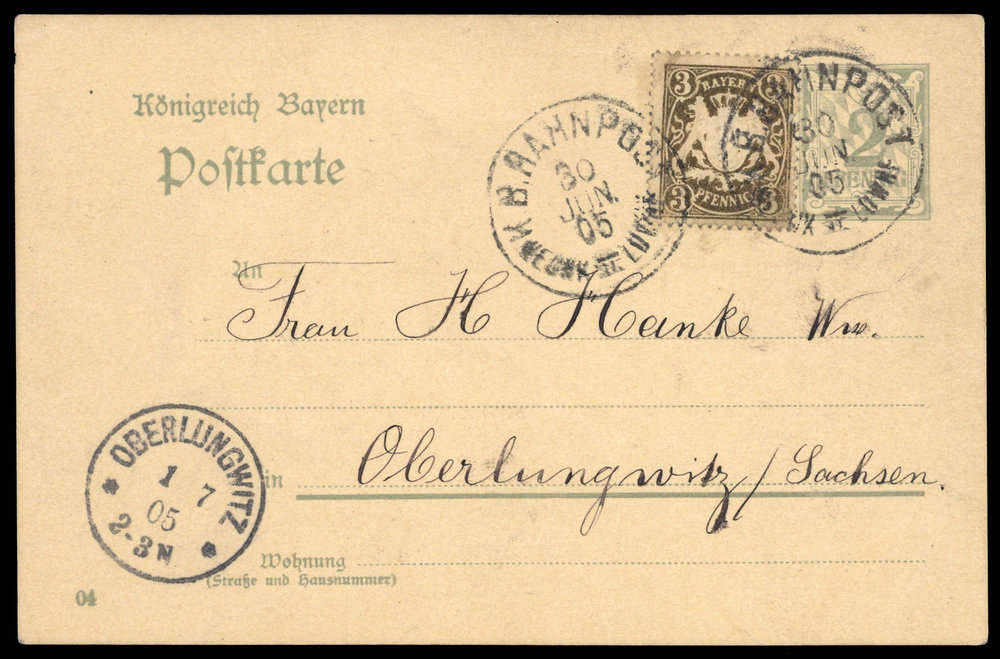 Königreich Bayern
Postkarte
3 BAYERN 3
3 PFENNIG 3
K.B.BAHNPOST
30
JUN
05
BAHNPOST
30
JUN
05
2
An
Frau H Hanke Wwe.
in Oberlungwitz / Sachsen.
OBERLUNGWITZ
1 7
05
2-3N
Wohnung
(Straße und Hausnummer)
04